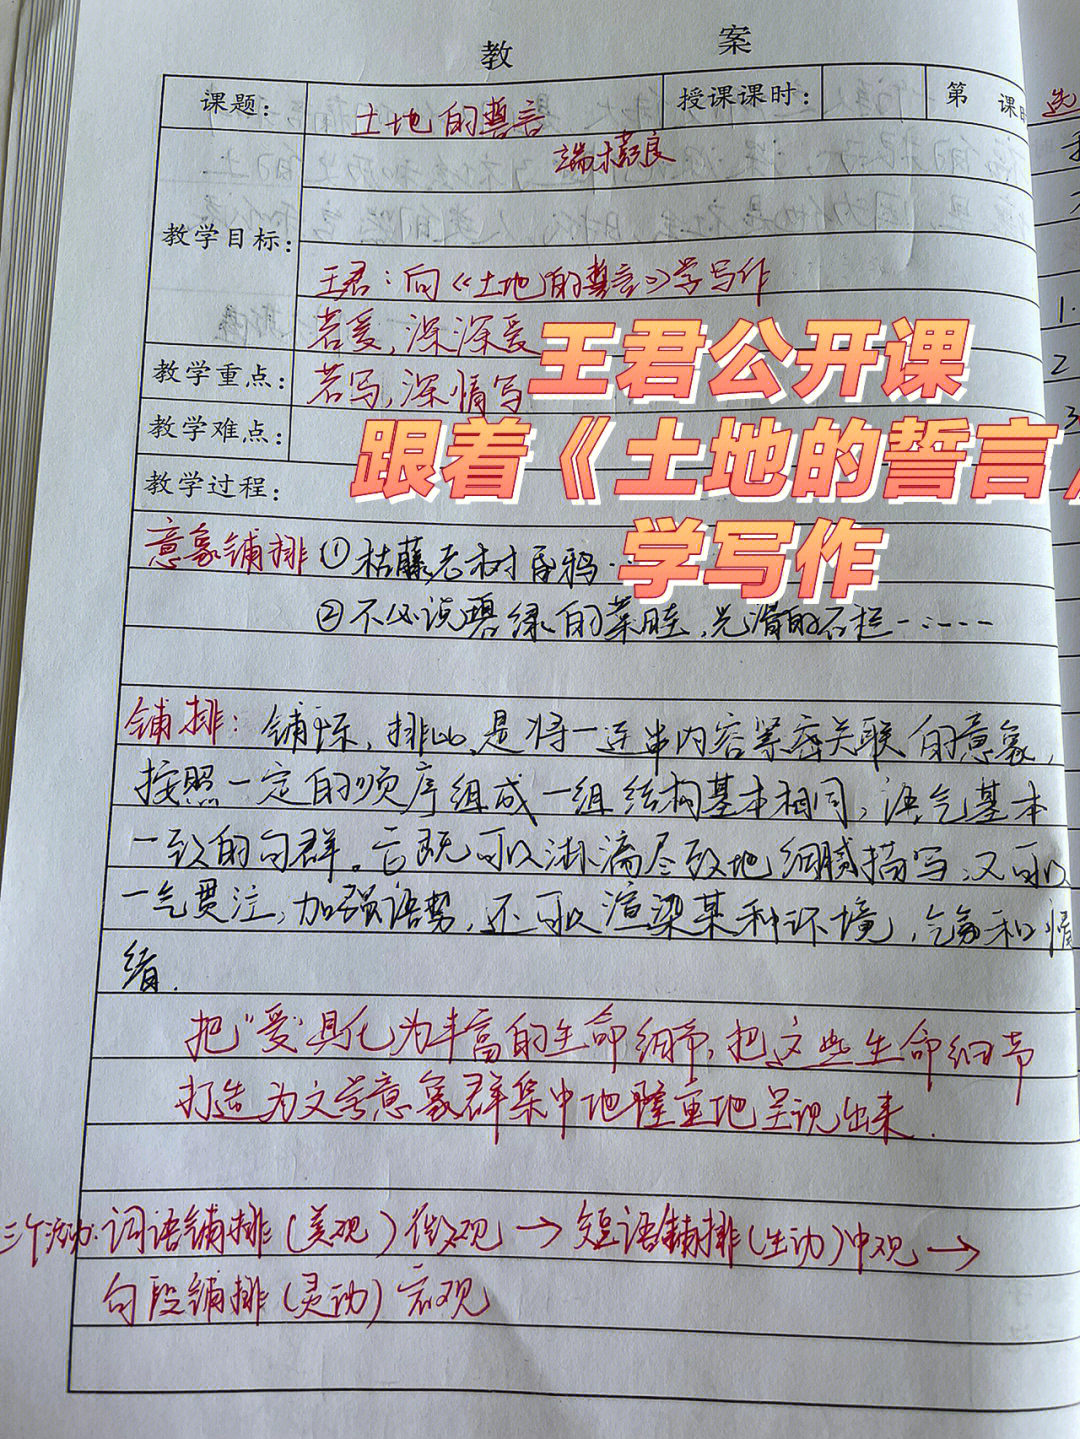 教 案
课题：
土地的誓言
授课课时：
第 课时
端木蕻良
教学目标：
王君：向《土地的誓言》学写作
若爱，深深爱
教学重点：
若写，深情写
教学难点：
教学过程：
王君公开课
跟着《土地的誓言
学写作
意象铺排 ①枯藤老树昏鸦…
②不必说碧绿的菜畦，光滑的石栏……
铺排：铺陈，排比，是将一连串内容紧密关联的意象，
按照一定的顺序组成一组结构基本相同，语气基本
一致的句群。它既可以淋漓尽致地细腻描写，又可以
一气贯注，加强语势，还可以渲染某种环境，气氛和情
绪.
把“爱”具化为丰富的生命细节，把这些生命细节
打造为文学意象群集中地隆重地呈现出来.
三个活动：词语铺排（美观）微观→短语铺排（生动）中观→
句段铺排（灵动）宏观
1.
2
3